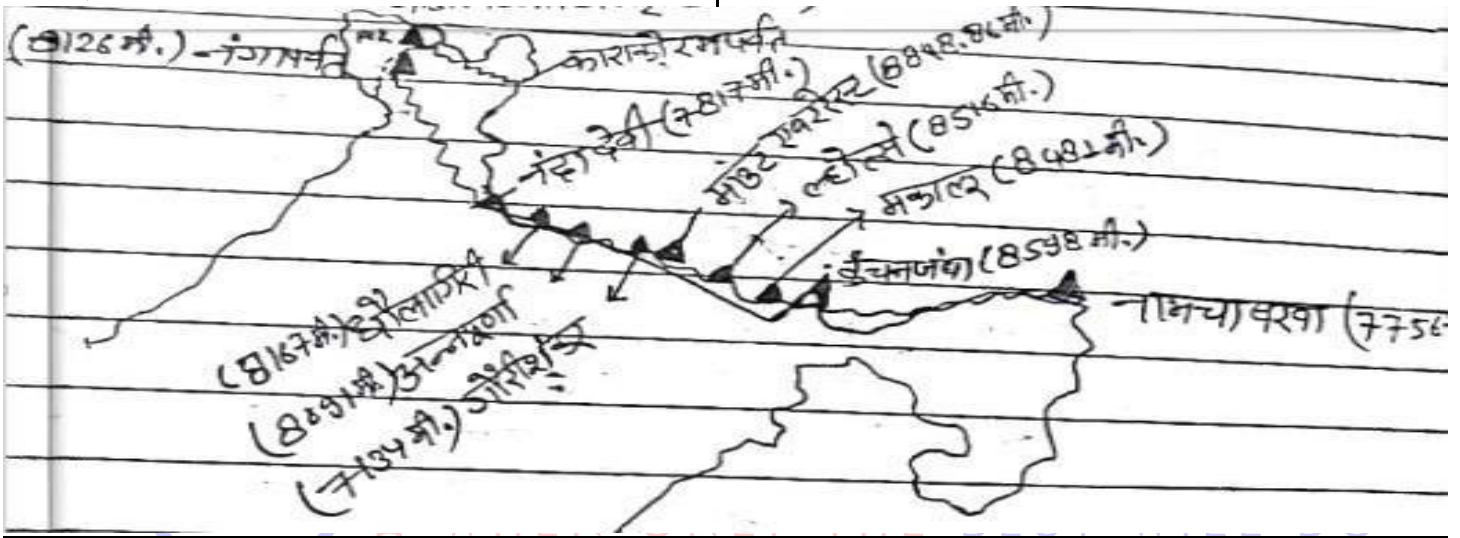 (8126 मी.) नंगापर्वत
K2
काराकोरम पर्वत
नंदा देवी (7817 मी.)
माउंट एवरेस्ट (8848.86 मी.)
ल्होत्से (8516 मी.)
मकालू (8481 मी.)
कंचनजंघा (8598 मी.)
नामचा बरवा (7756
(8167 मी.) धौलागिरी
(8091 मी.) अन्नपूर्णा
(7134 मी.) गौरीशंकर